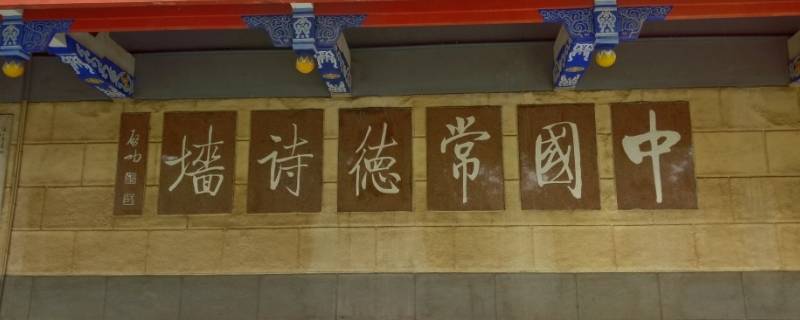 中國常德诗墙
启功